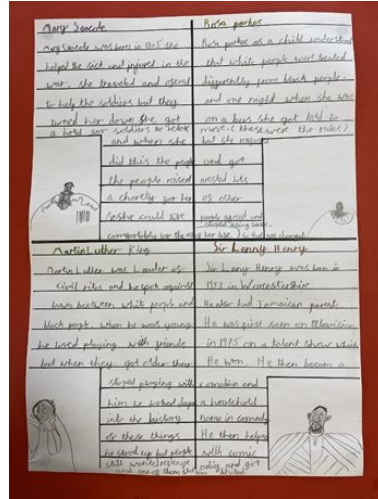 Mary Seacole
Mary Seacole was born in 1805 she
helped the sick and injured in the
war. she traveled and offered
to help the soldiers but they
turned her down she got
a hotel for soldiers to relax
and when she
did this the
the people raised
a charity for
so she could live
comfortably for the of her life
Rosa parkes
Rose parkes as a child
that white people were treated
differently from black people.
and one night when she was
on a bus she got told to
move. (these were the rules)
but she
and got
arested lots
of other
people agreed and
so that was changed
Martin Luther King
Martin Luther was Leader of
civil rites and he spoke against
laws between white people and
black people. when he was young
he loved playing with friends
but when they got older they
stoped playing with
him he looked
into the history
of these things
he stood up but people
still wanted revenge
and one of them
Sir Lenny Henry
Sir Leny Henry was born in
in Worcestershire
He also had Jamaican parents.
He was first seen on television
in 1975 on a talent show which
He won. He then became a
comedian and
a household
name in comedy
He then helps
with comic
and got